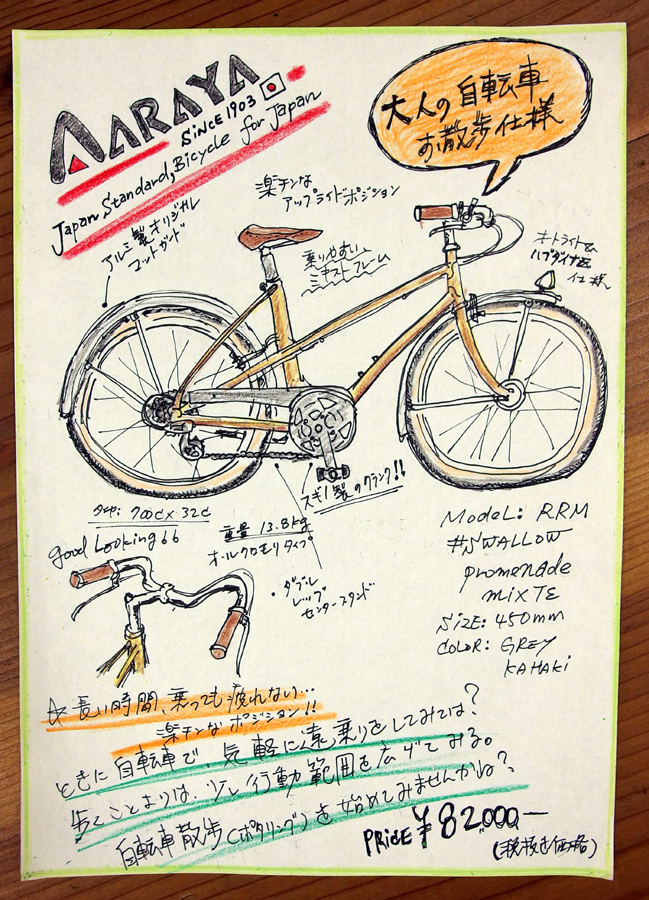 ARAYA
SINCE 1903
Japan Standard, Bicycle for Japan
大人の自転車
お散歩仕様
楽チンな
アップライドポジション
アルミ製オリジナル
マットガード
乗りやすい、
ミキストフレーム
オートライト&
ハブダイナモ
仕様
スギノ製のクランク!!
タイヤ: 700c×32c
重量 13.8kg
オールクロモリタイプ
good Looking 66
・ダブル
レッグ
センタースタンド
Model: RRM
#SWALLOW
promenade
mixTE
SIZE: 450mm
COLOR: GREY
KAHAKI
☆長い時間、乗っても疲れない…
楽チンなポジション!!
ときに自転車で、気軽に遠乗りをしてみては?
歩くことよりは、少し行動範囲を広げてみる。
自転車散歩(ポタリング)を始めてみませんかね?
PRICE ¥82,000-
(税抜き価格)